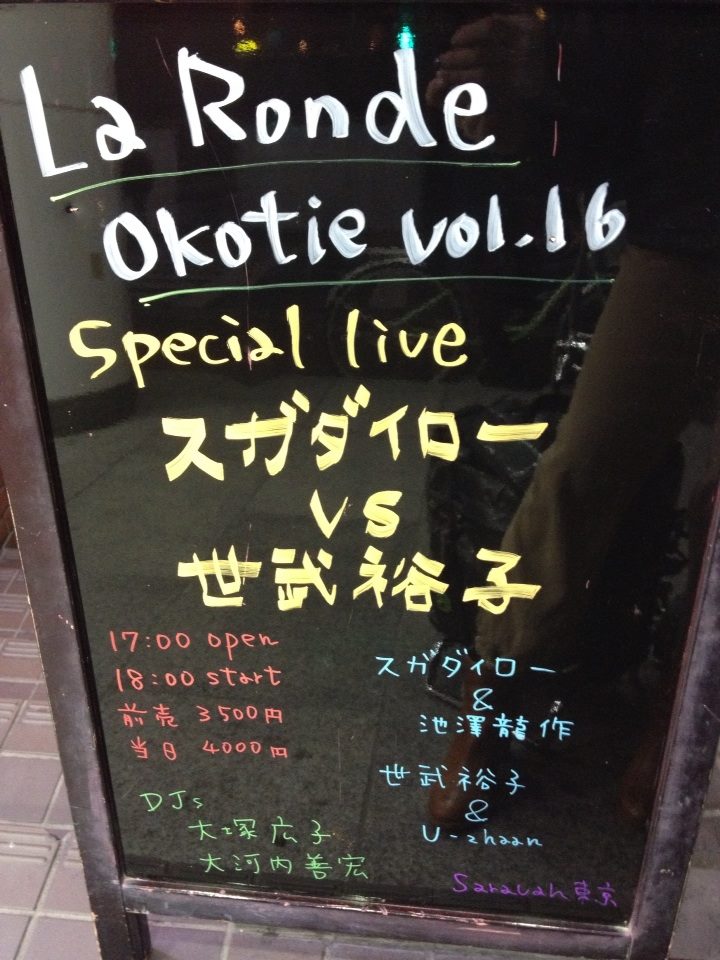 La Ronde
Okotie vol.16
Special live
スガダイロー
vs
世武裕子
17:00 open
18:00 start
前売 3500円
当日 4000円
スガダイロー
&
池澤龍作
世武裕子
&
U-zhaan
DJs
大塚広子
大河内善宏
Saravah東京